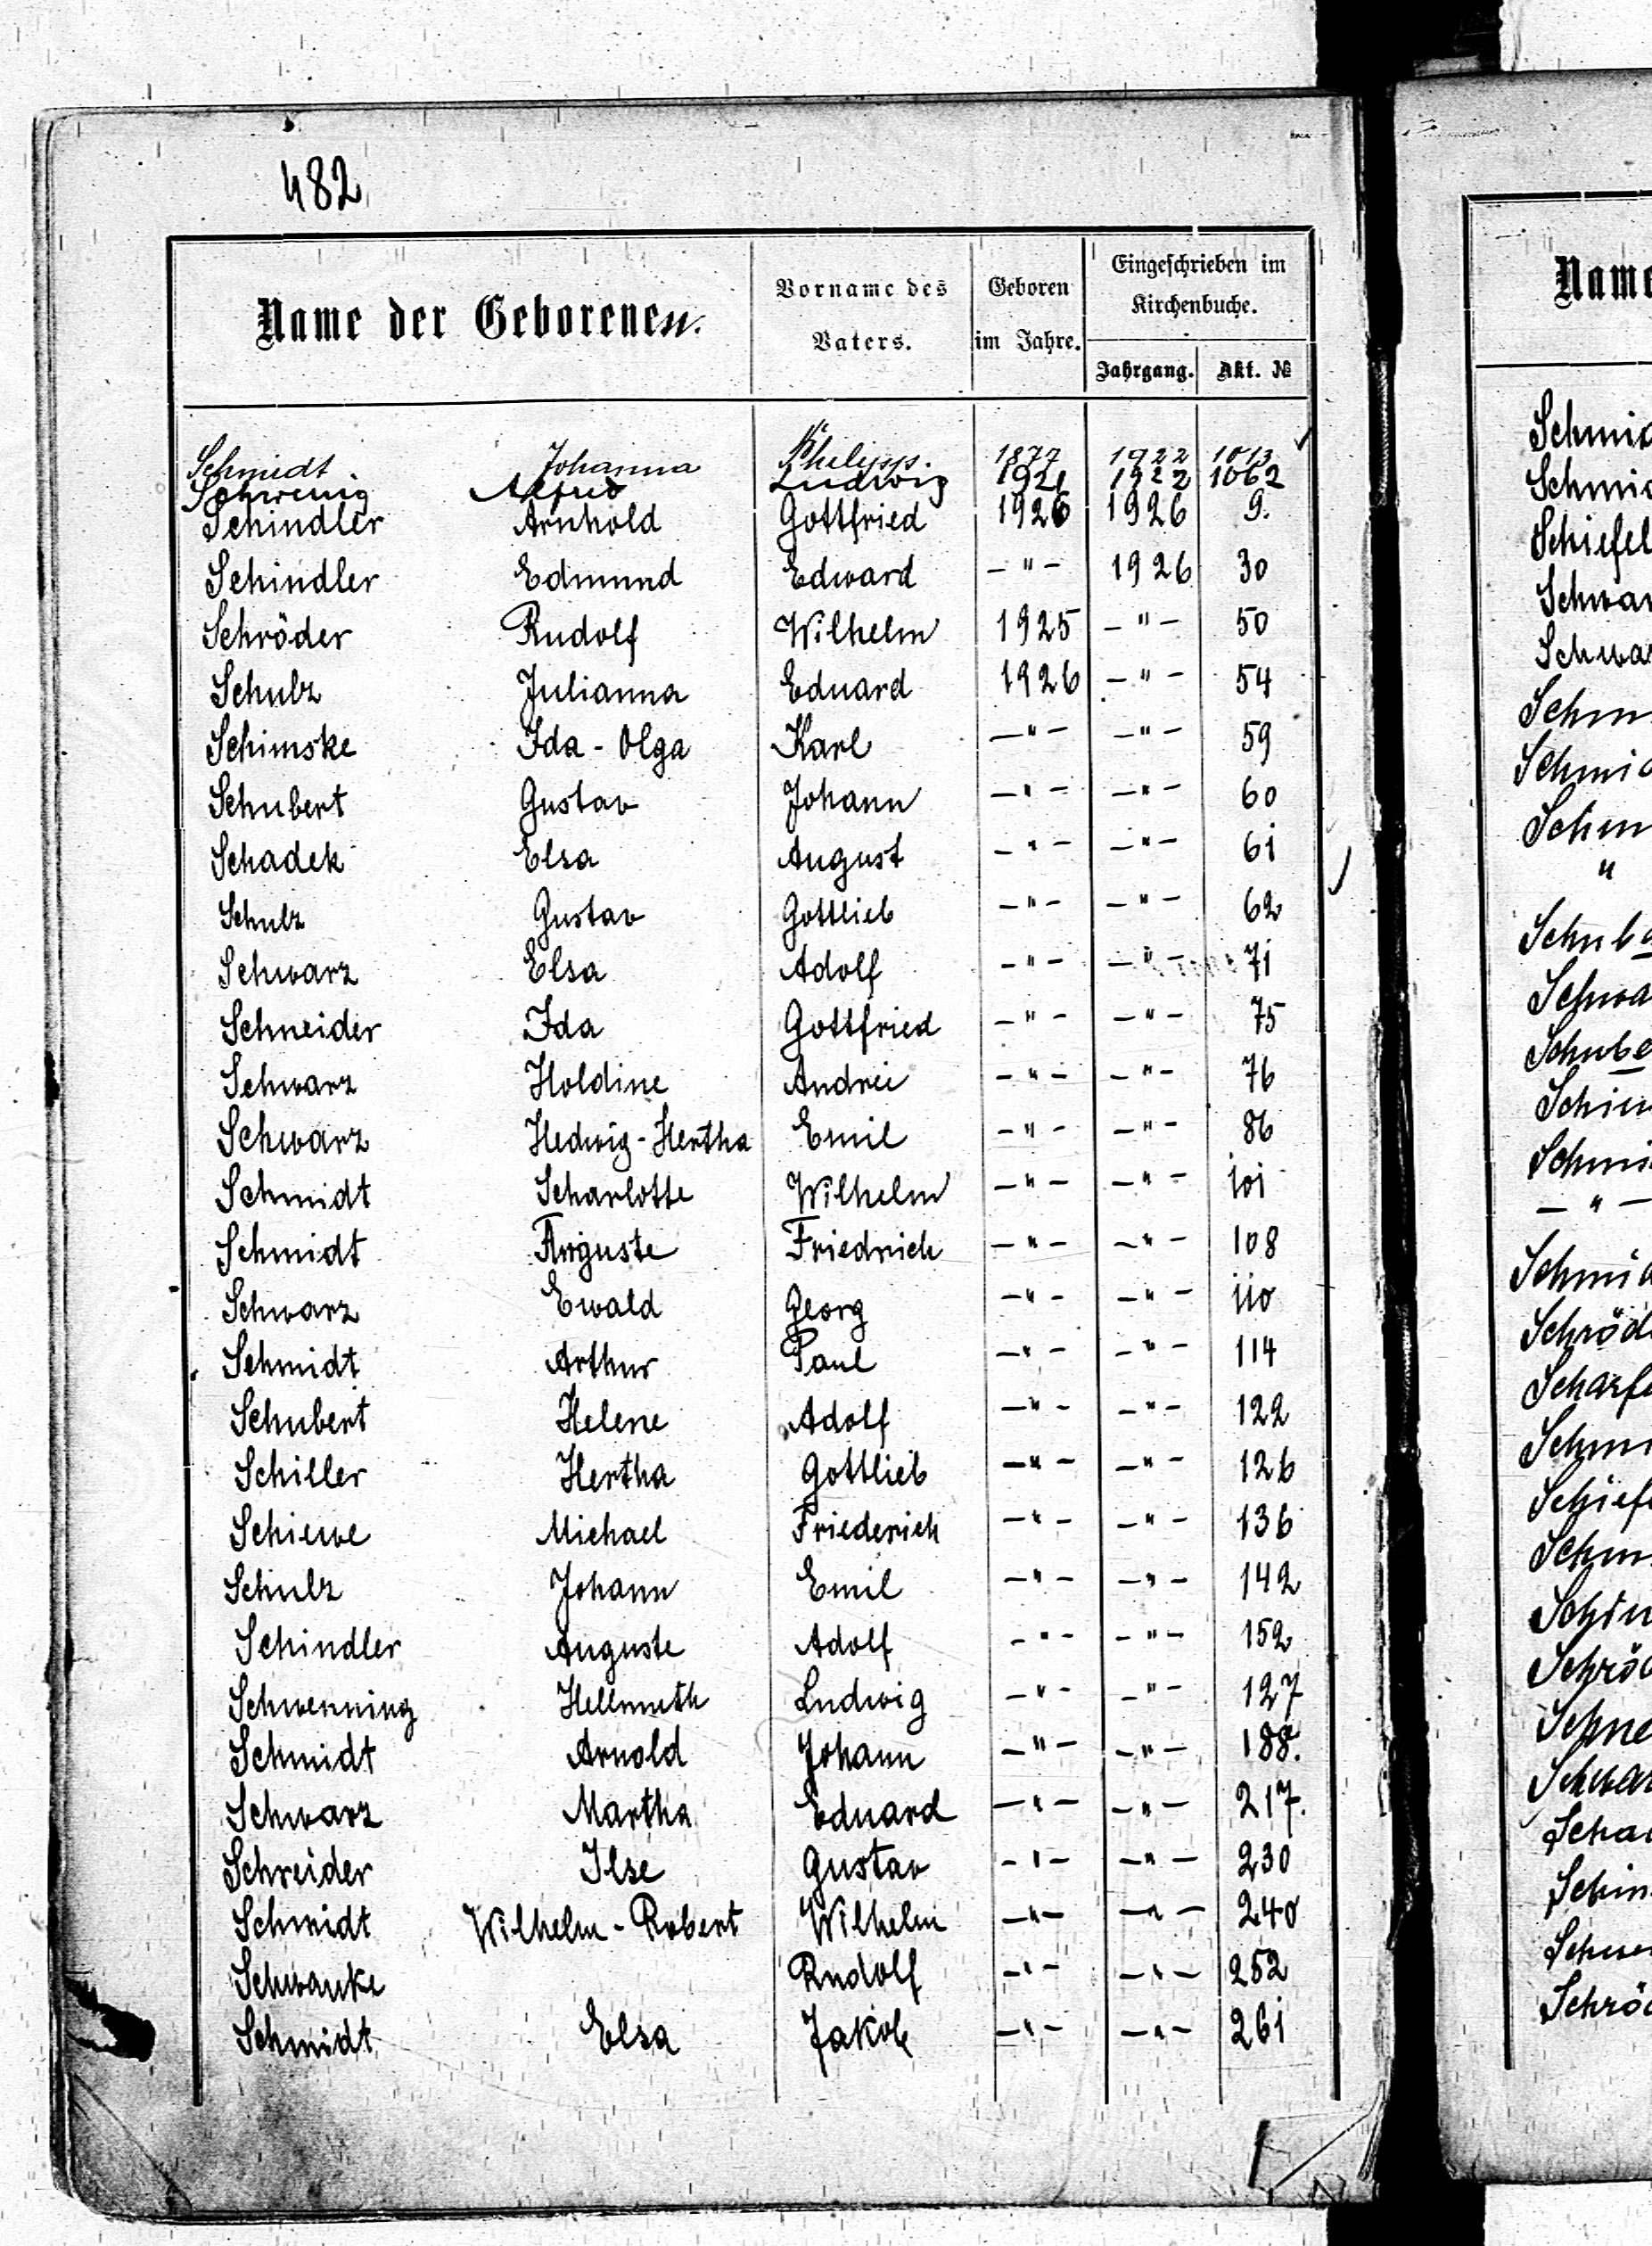 482
Name der Geborenen.
Vorname des Vaters.
Geboren im Jahre.
Eingeschrieben im Kirchenbuche.
Jahrgang.
Akt. №
Schmidt Johanna Philipp. 1877 1922 1013
Schwenig Alfred Ludwig 1921 1922 1062
Schindler Arnhold Gottfried 1926 1926 9.
Schindler Edmund Edward -"- 1926 30
Schröder Rudolf Wilhelm 1925 -"- 50
Schulz Julianna Eduard 1926 -"- 54
Schimske Ida - Olga Karl -"- -"- 59
Schubert Gustav Johann -"- -"- 60
Schadek Elsa August -"- -"- 61
Schulz Gustav Gottlieb -"- -"- 62
Schwarz Elsa Adolf -"- -"- 71
Schneider Ida Gottfried -"- -"- 75
Schwarz Holdine Andrei -"- -"- 76
Schwarz Hedwig - Hertha Emil -"- -"- 86
Schmidt Scharlotte Wilhelm -"- -"- 101
Schmidt Auguste Friedrich -"- -"- 108
Schwarz Ewald Georg -"- -"- 110
Schmidt Arthur Paul -"- -"- 114
Schubert Helene Adolf -"- -"- 122
Schiller Hertha Gottlieb -"- -"- 126
Schiewe Michael Friederich -"- -"- 136
Schulz Johann Emil -"- -"- 142
Schindler Auguste Adolf -"- -"- 152
Schwenning Hellmuth Ludwig -"- -"- 127
Schmidt Arnold Johann -"- -"- 188.
Schwarz Martha Eduard -"- -"- 217.
Schreider Ilse Gustav -"- -"- 230
Schmidt Wilhelm - Robert Wilhelm -"- -"- 240
Schwanke Rudolf -"- -"- 252
Schmidt Elsa Jakob -"- -"- 261
Name